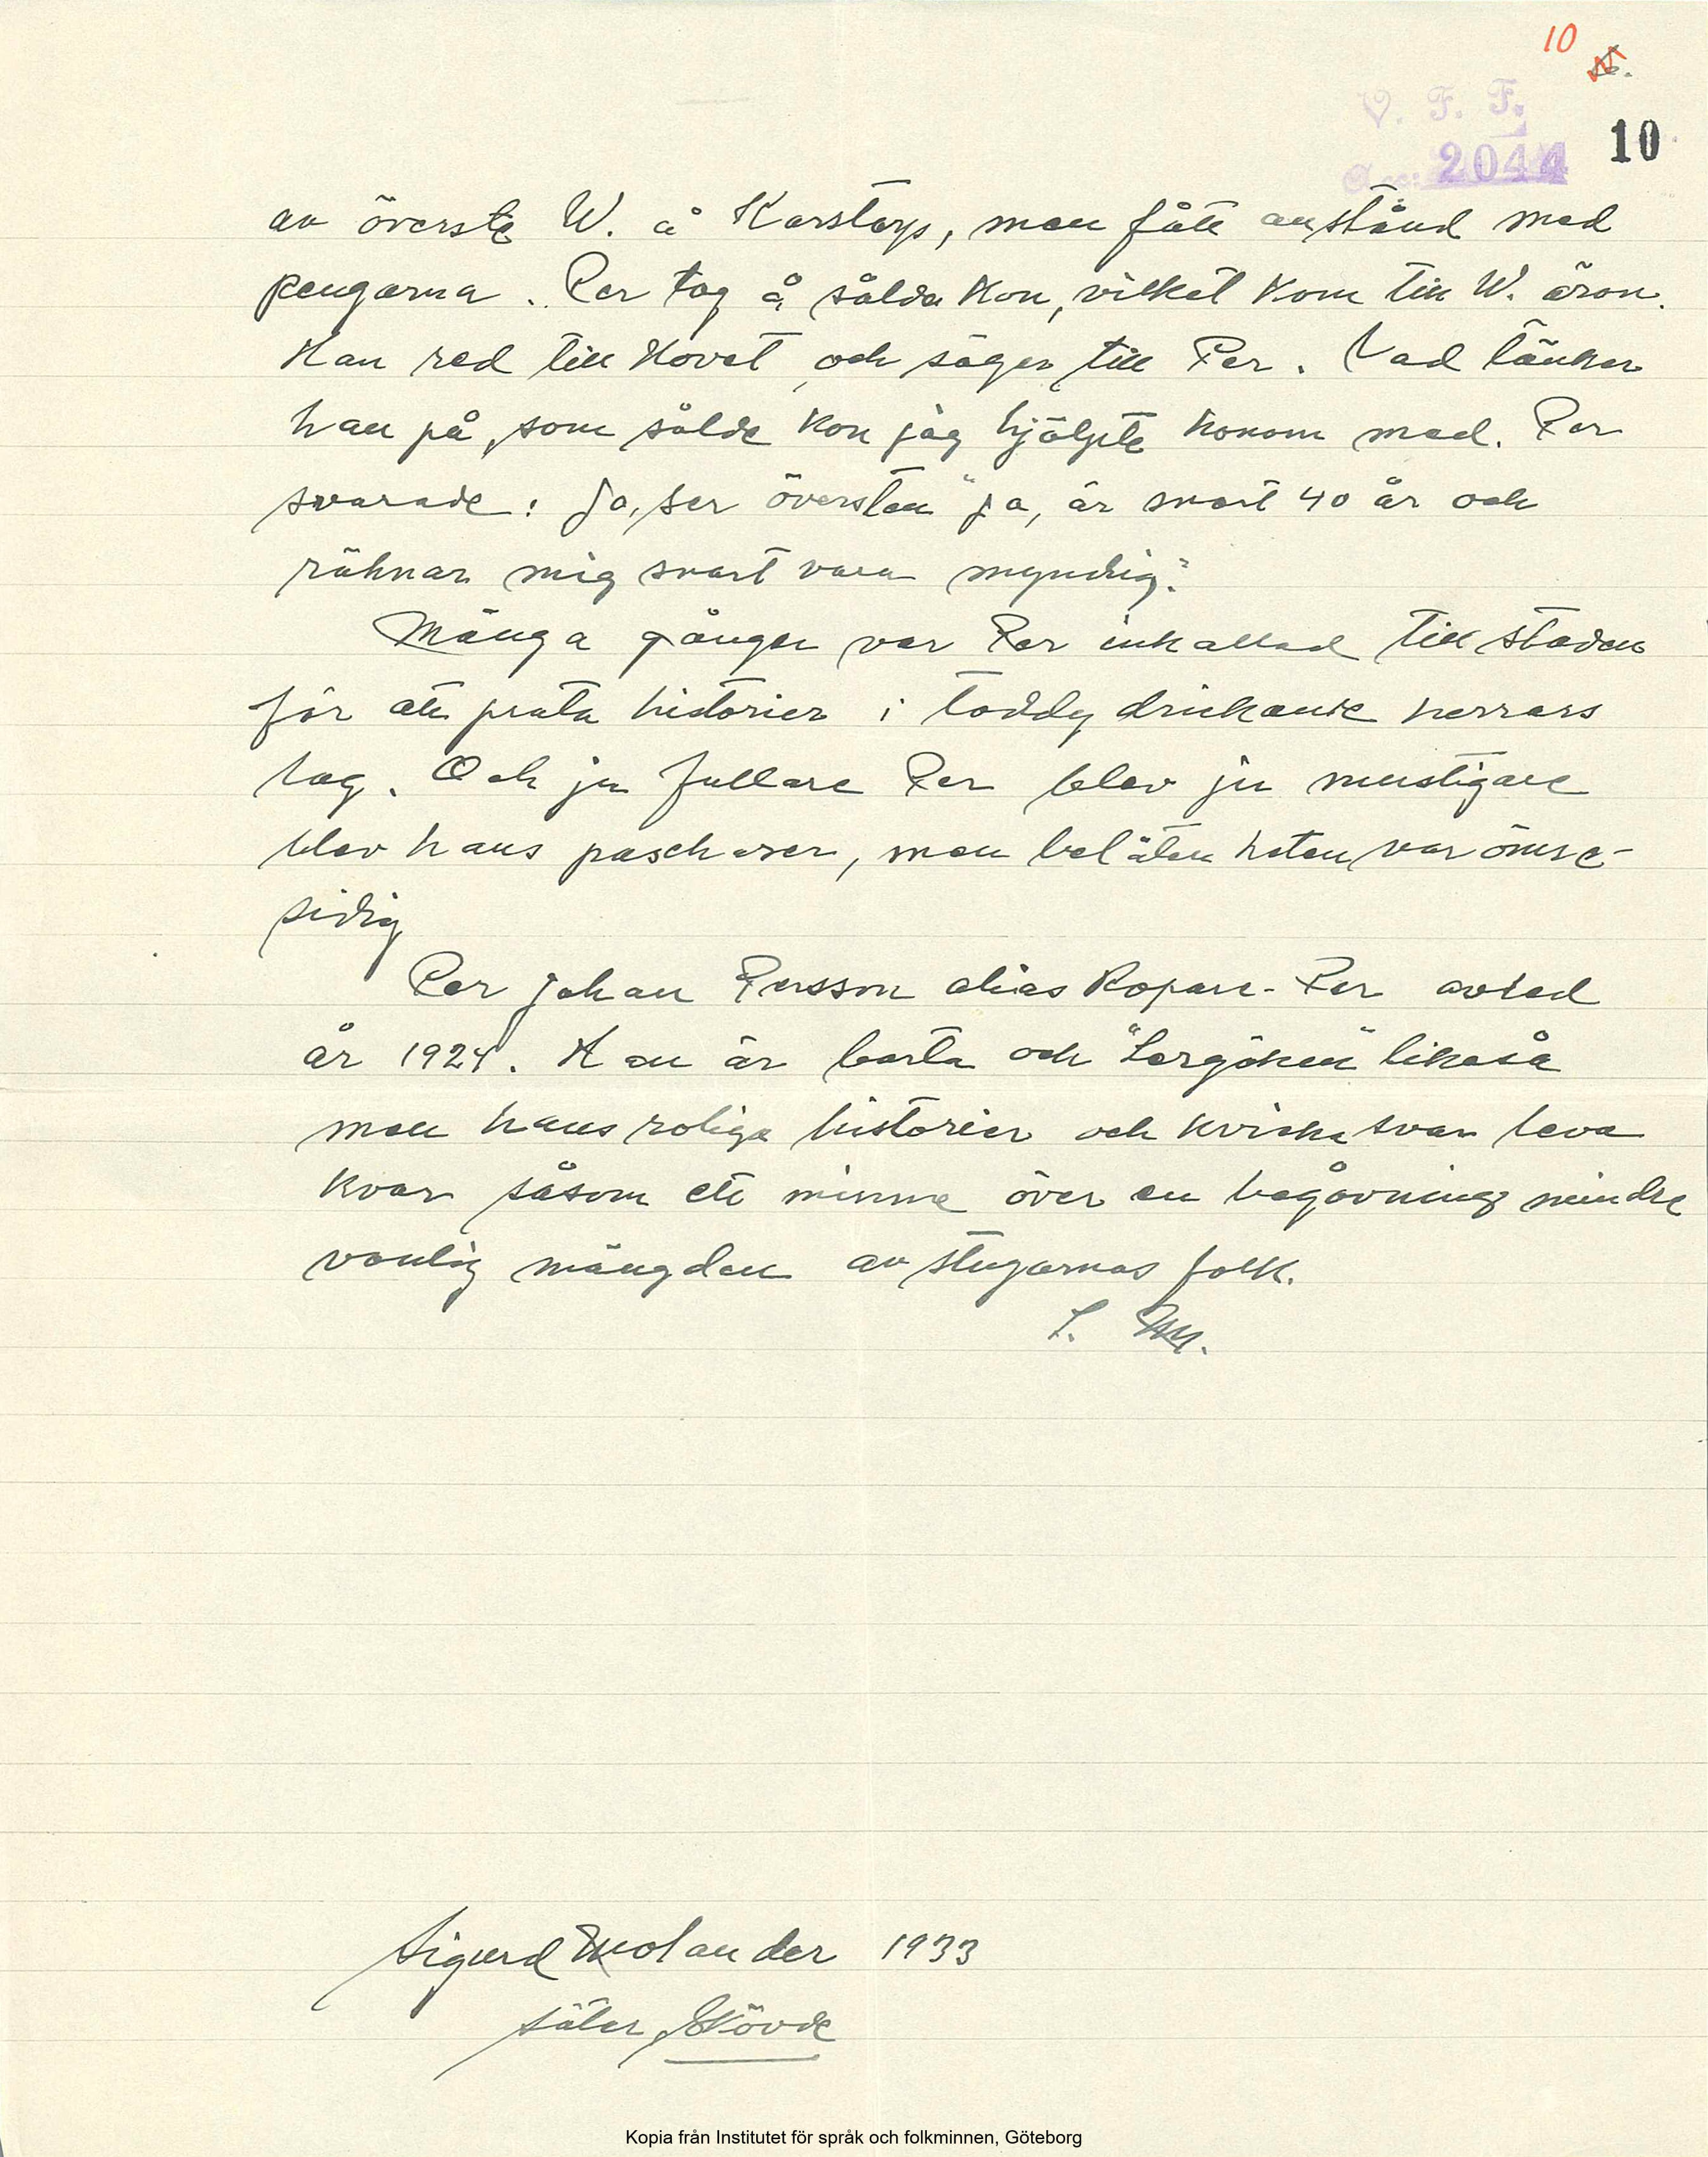 10
V. F. F.
Acc: 2044
10
av överste W. å Karstorp, men fått anstånd med
pengarna. Per tog å sålda kon, vilket kom till W. öron.
Han red till Hovet och säger till Per. Vad tänker
han på, som sålde kon jag hjälpte honom med. Per
svarade: Ja, ser översten "ja, är snart 40 år och
räknar mig snart vara myndig."
Många gånger var Per inkallad till staden
för att prata historier i toddydrickande herrars
lag. Och ju fullare Per blev ju mustigare
blev hans paschaser, men belåtenheten var ömse-
sidig
Per Johan Persson alias Ropare-Per avled
år 1924. Han är borta och "Lergöken" likaså
men hans roliga historier och kvicka svar leva
kvar såsom ett minne över en begåvning mindre
vanlig mängden av stugornas folk.
S. M.
Sigurd Molander 1933
Säter, Skövde
Kopia från Institutet för språk och folkminnen, Göteborg